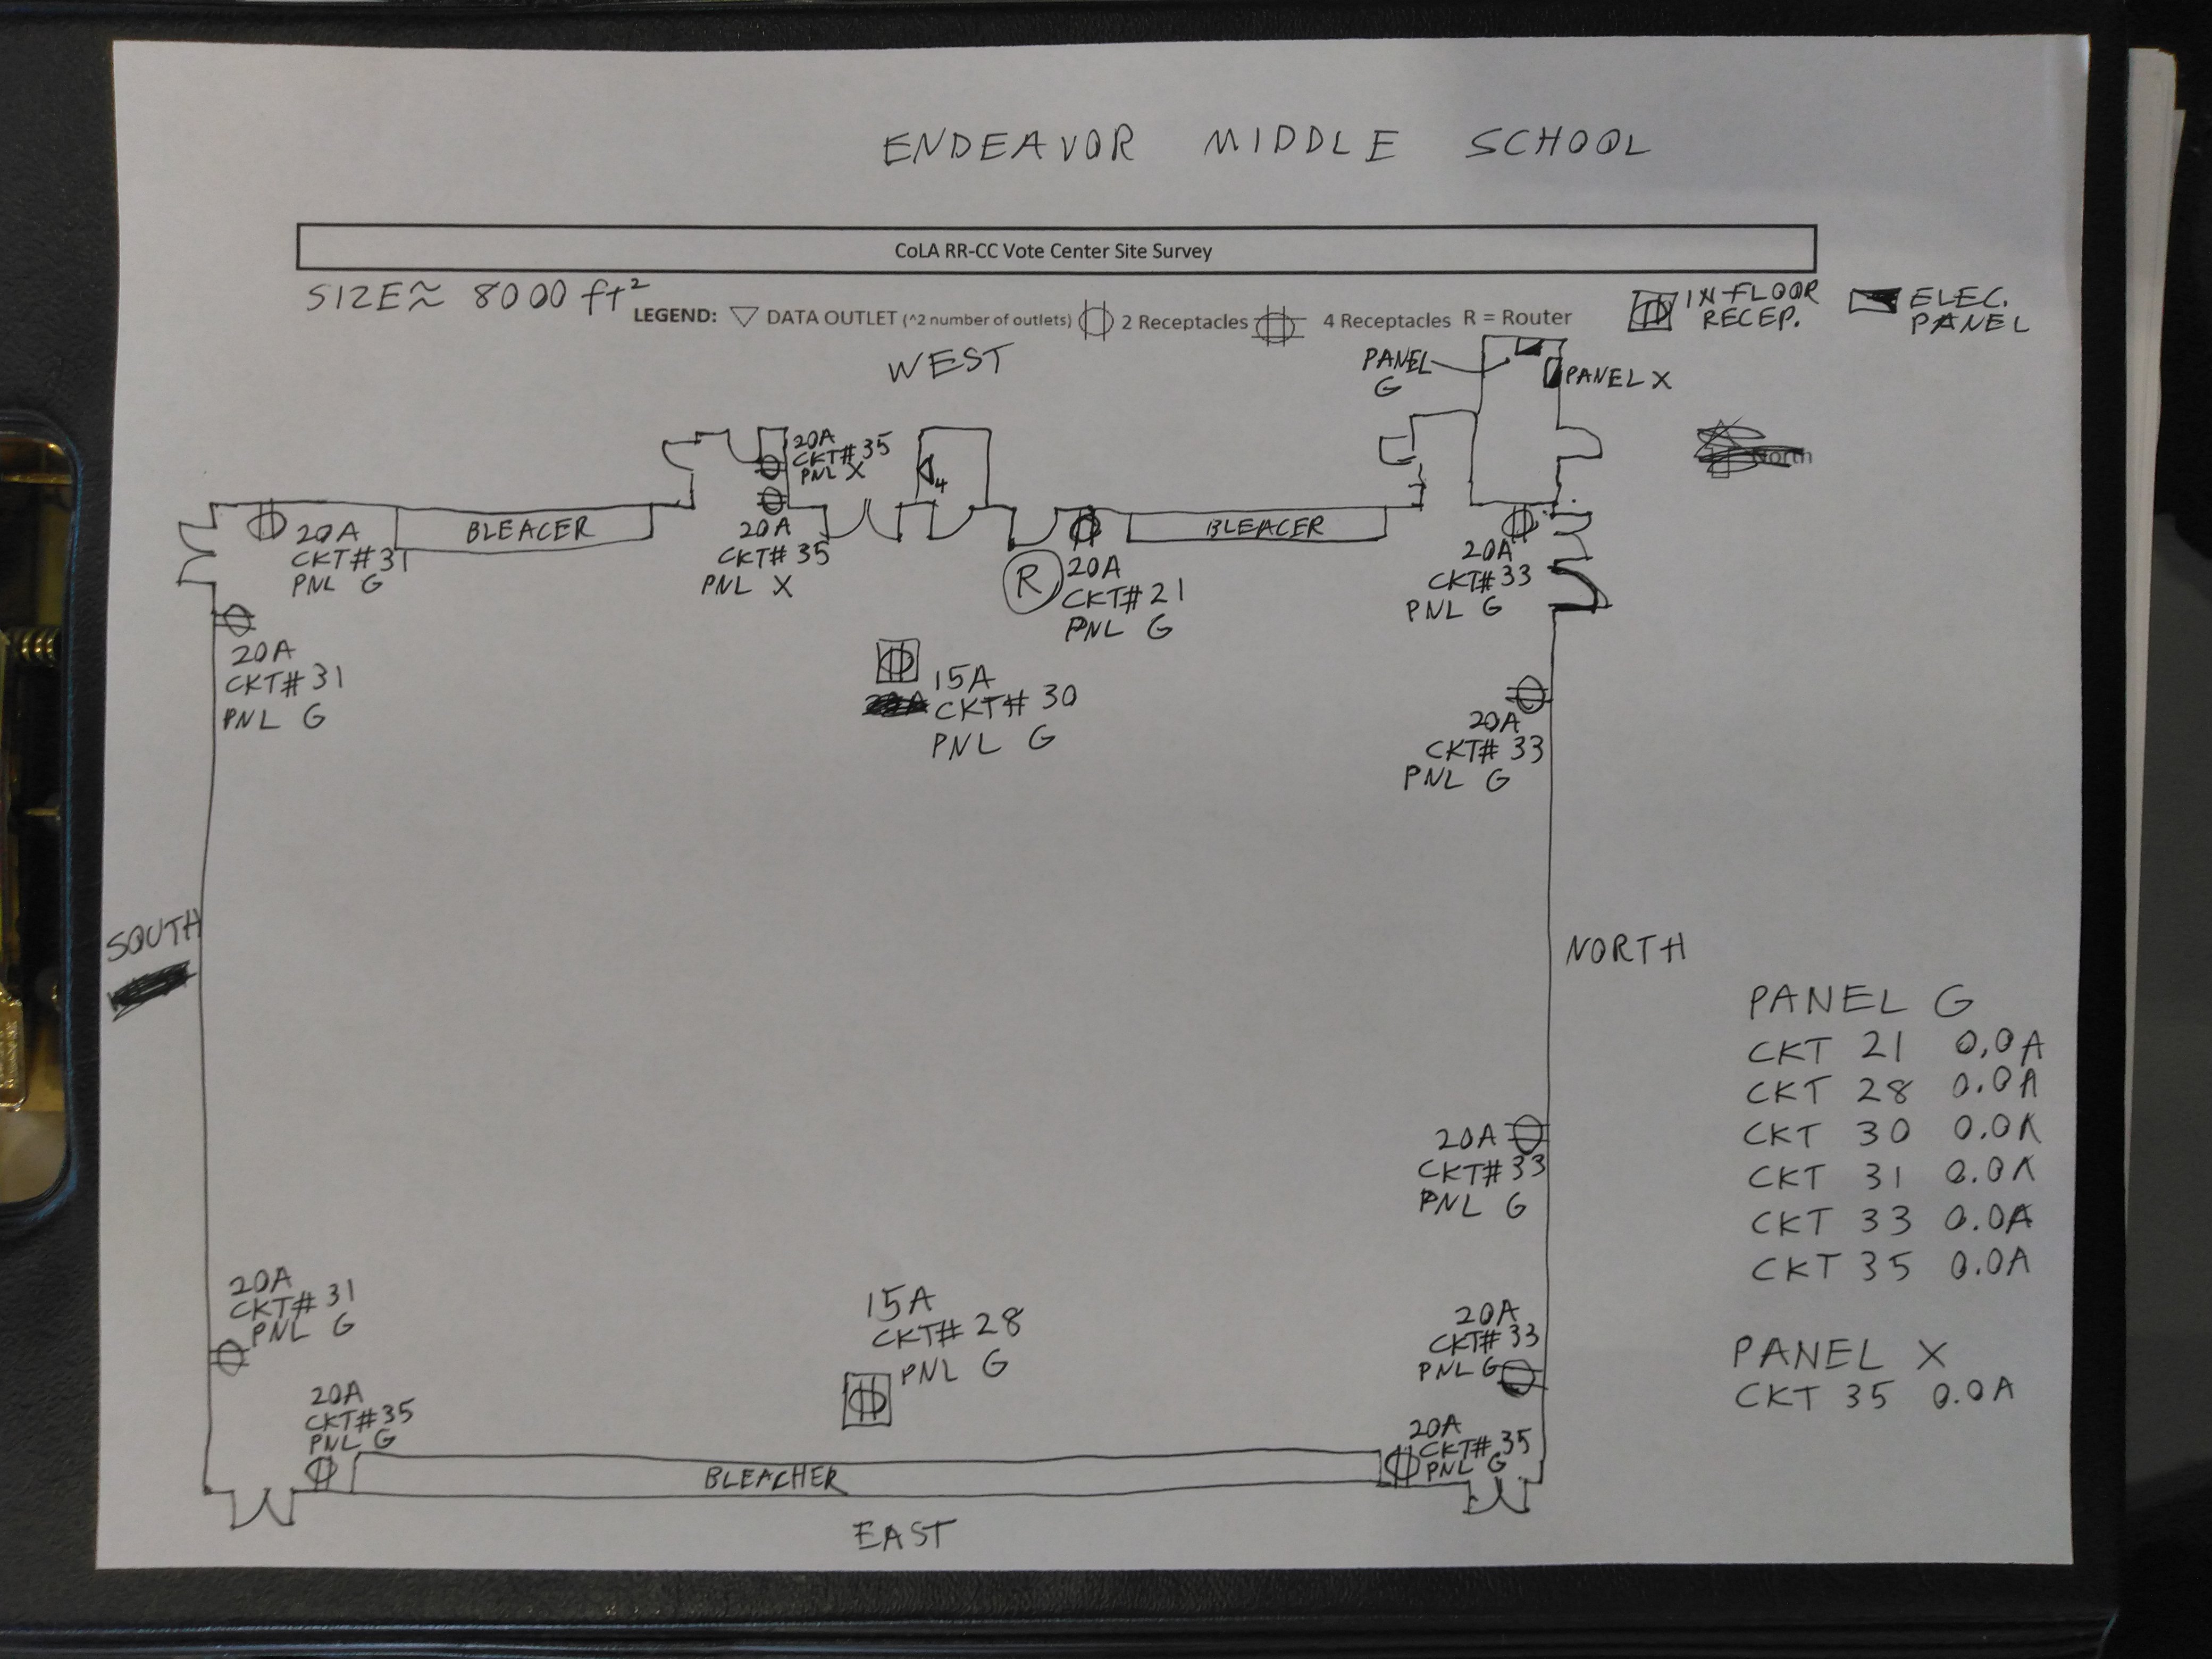 ENDEAVOR MIDDLE SCHOOL
CoLA RR-CC Vote Center Site Survey
SIZE ≈ 8000 ft²
LEGEND: ▽ DATA OUTLET (^2 number of outlets) 2 Receptacles 4 Receptacles R = Router
IN-FLOOR
RECEP.
ELEC.
PANEL
WEST
PANEL
G
PANEL X
North
20A
CKT# 35
PNL X
4
20A
CKT# 31
PNL G
BLEACER
20A
CKT# 35
PNL X
R
20A
CKT# 21
PNL G
BLEACER
20A
CKT# 33
PNL G
20A
CKT# 31
PNL G
15A
CKT# 30
PNL G
20A
CKT# 33
PNL G
SOUTH
NORTH
20A
CKT# 33
PNL G
PANEL G
CKT 21 0.0A
CKT 28 0.0A
CKT 30 0.0A
CKT 31 0.0A
CKT 33 0.0A
CKT 35 0.0A
PANEL X
CKT 35 0.0A
20A
CKT# 31
PNL G
15A
CKT# 28
PNL G
20A
CKT# 33
PNL G
20A
CKT# 35
PNL G
20A
CKT# 35
PNL G
BLEACHER
EAST